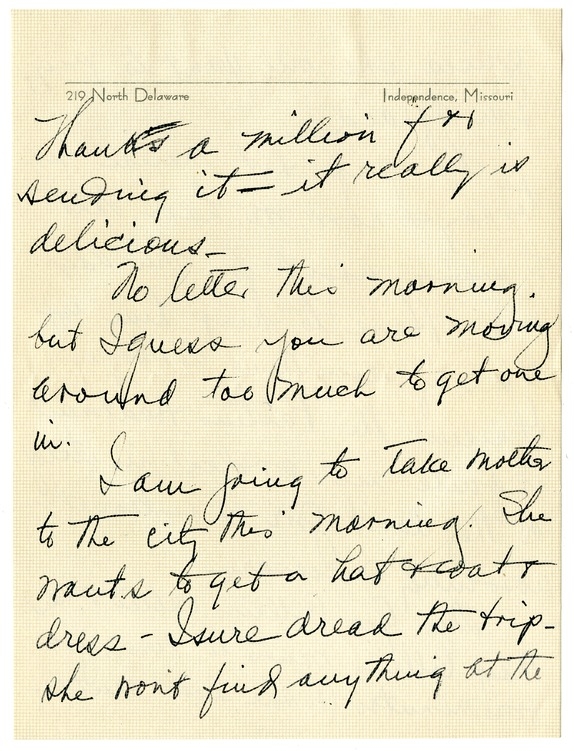 219 North Delaware Independence, Missouri
Thanks a million for
sending it — it really is
delicious —
No letter this morning,
but I guess you are moving
around too much to get one
in.
I am going to take mother
to the city this morning. She
wants to get a hat & coat &
dress - I sure dread the trip -
she won't find anything at the